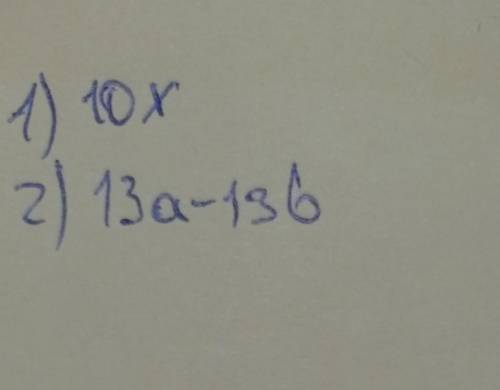 1) 10x
2) 13a-19b